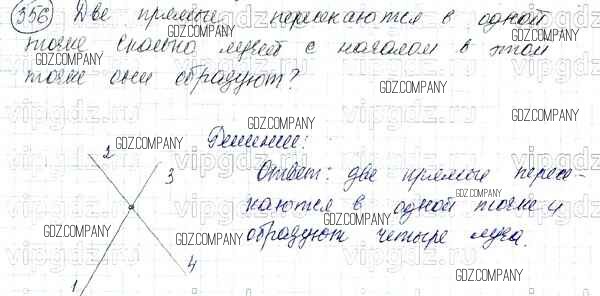 356 Две прямые пересекаются в одной
точке сколько лучей с началом в этой
точке они образуют?
Решение:
Ответ: две прямые пересе-
каются в одной точке и
образуют четыре луча.
2
3
1
4
GDZ.COMPANY
GDZ.COMPANY
GDZ.COMPANY
GDZ.COMPANY
GDZ.COMPANY
GDZ.COMPANY
GDZ.COMPANY
GDZ.COMPANY
GDZ.COMPANY
vipgdz.ru
vipgdz.ru
vipgdz.ru
vipgdz.ru